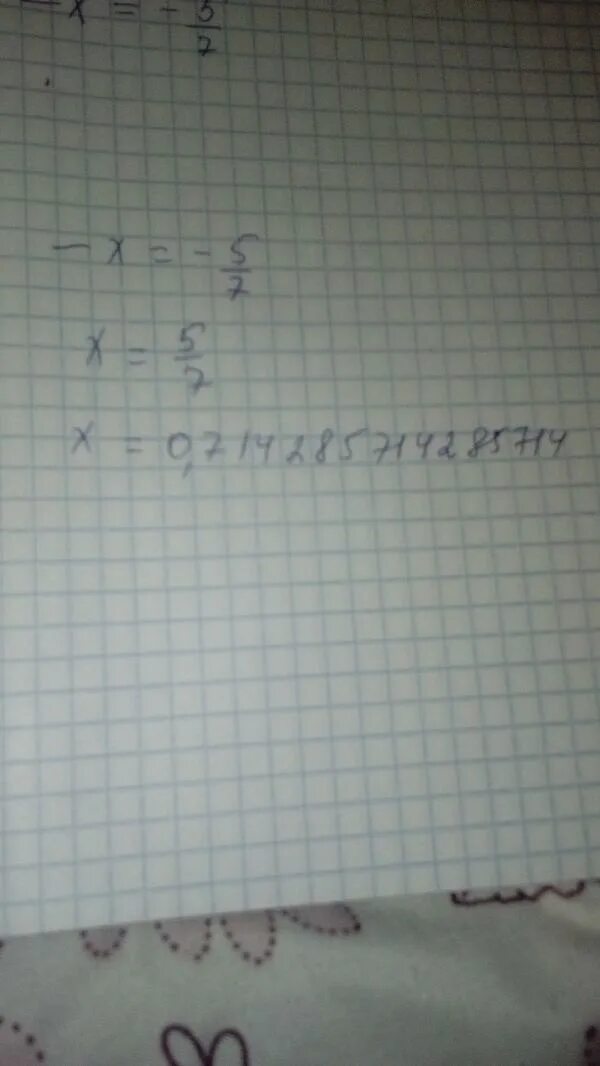 -x = - 5/7
-x = - 5/7
x = 5/7
x = 0,714285714285714